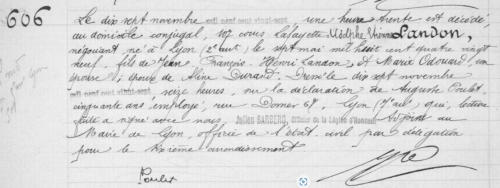 606
Le dix sept novembre mil neuf cent vingt-sept une heure trente est décédé,
au domicile conjugal, 107 cours Lafayette Adolphe LANDON,
négociant, né à Lyon (2e arrt) le sept mai mil huit cent quatre vingt
neuf, fils de Jean François-Henri Landon, et Maria Edouard, son
épouse; époux de Durand.- Dressé le dix sept novembre
mil neuf cent vingt-sept, seize heures, sur la déclaration de Auguste Poulet
cinquante ans employé, rue 67, Lyon (7e arrt) qui, lecture
faite a signé avec nous, Julien BARBERO, Officier de la Légion d'Honneur Adjoint au
Maire de Lyon, officier de l'état civil par délégation
pour le sixième arrondissement
Poulet